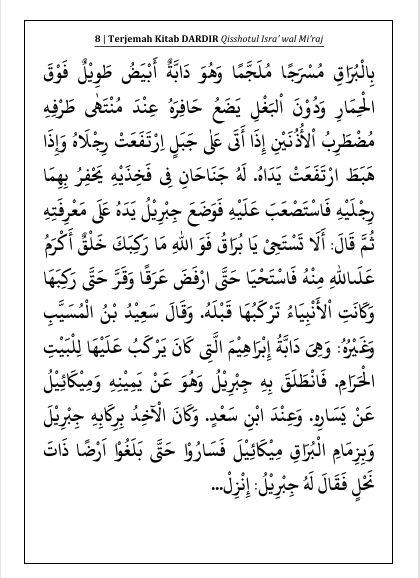 8 | Terjemah Kitab DARDIR Qisshotul Isra' wal Mi'raj
بِالْبُرَاقِ مُسْرَجًا مُلَجَّمًا وَهُوَ دَابَّةٌ أَبْيَضُ طَوِيْلٌ فَوْقَ
الْحِمَارِ وَدُوْنَ اْلبَغْلِ يَضَعُ حَافِرَهُ عِنْدَ مُنْتَهٰى طَرْفِهِ
مُضْطَرِبُ اْلأُذُنَيْنِ إِذَا أَتَى عَلٰى جَبَلٍ اِرْتَفَعَتْ رِجْلَاهُ وَإِذَا
هَبَطَ ارْتَفَعَتْ يَدَاهُ. لَهُ جَنَاحَانِ فِى فَخِذَيْهِ يَحْفِرُ بِهِمَا
رِجْلَيْهِ فَاسْتَصْعَبَ عَلَيْهِ فَوَضَعَ جِبْرِيْلُ يَدَهُ عَلَى مَعْرِفَتِهِ
ثُمَّ قَالَ: أَلَا تَسْتَحِىْ يَا بُرَاقُ فَوَ اللهِ مَا رَكِبَكَ خَلْقٌ أَكْرَمُ
عَلَىاللهِ مِنْهُ فَاسْتَحْيَا حَتَّى ارْفَضَ عَرَقًا وَقَرَّ حَتَّى رَكِبَهَا
وَكَانَتِ اْلأَنْبِيَاءُ تَرْكَبُهَا قَبْلَهُ. وَقَالَ سَعِيْدُ بْنُ الْمُسَيَّبِ
وَغَيْرُهُ: وَهِىَ دَابَّةُ إِبْرَاهِيْمَ الَّتِى كَانَ يَرْكَبُ عَلَيْهَا لِلْبَيْتِ
الْحَرَامِ. فَانْطَلَقَ بِهِ جِبْرِيْلُ وَهُوَ عَنْ يَمِيْنِهِ وَمِيْكَائِيْلُ
عَنْ يَسَارِهِ. وَعِنْدَ ابْنِ سَعْدٍ. وَكَانَ الْآخِذُ بِرِكَابِهِ جِبْرِيْلَ
وَبِزِمَامِ الْبُرَاقِ مِيْكَائِيْلَ فَسَارُوْا حَتَّى بَلَغُوْا اَرْضًا ذَاتَ
نَخْلٍ فَقَالَ لَهُ جِبْرِيْلُ: إِنْزِلْ...